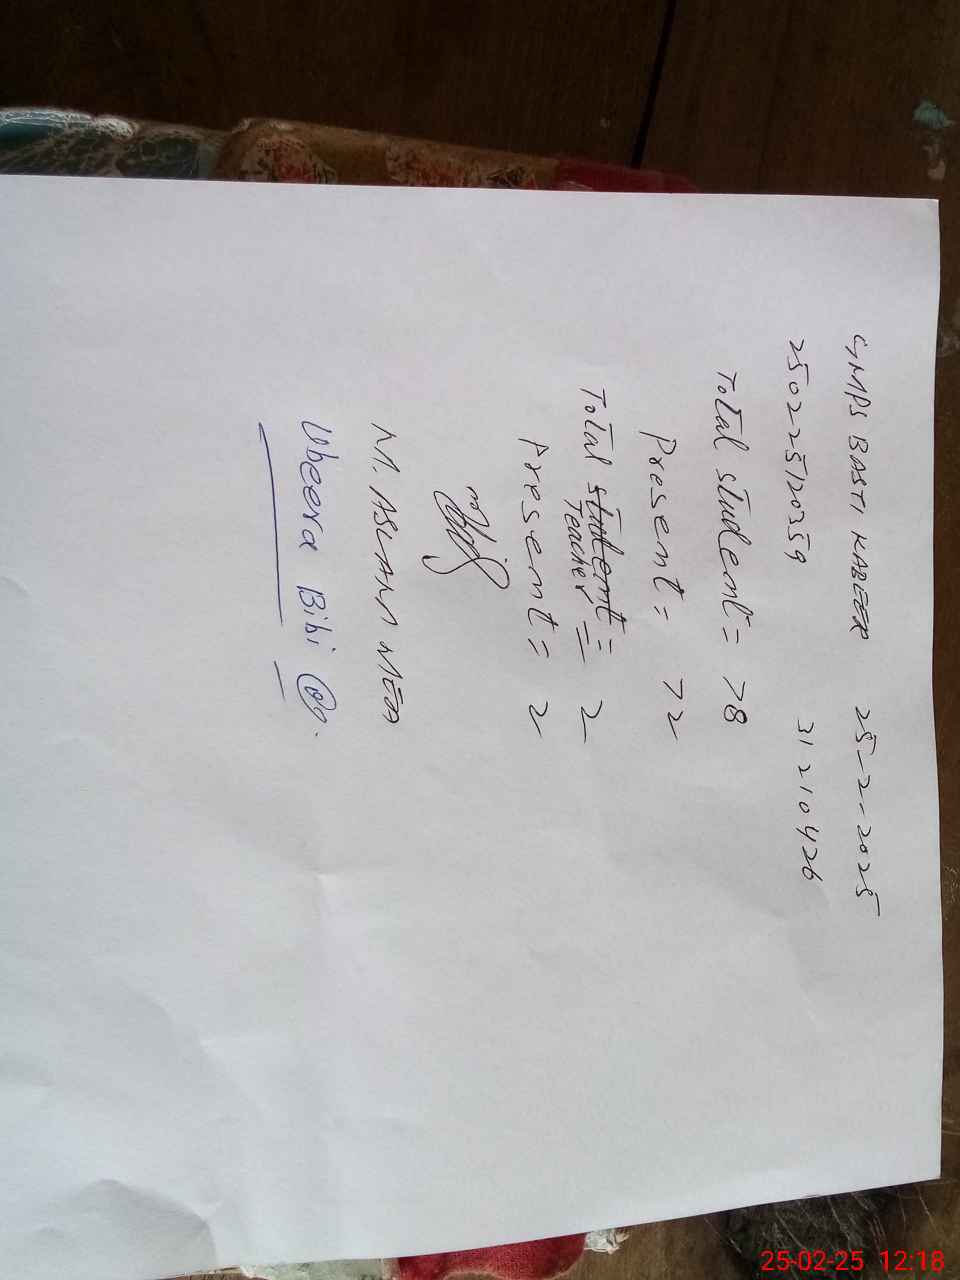 GMPS BASTI KABEER 25-2-2025
250225120359 31210426
Total student = 78
Present = 72
Total student =
Teacher = 2
Present = 2
M. ASLAM MEO
Ubeera Bibi
25-02-25 12:18